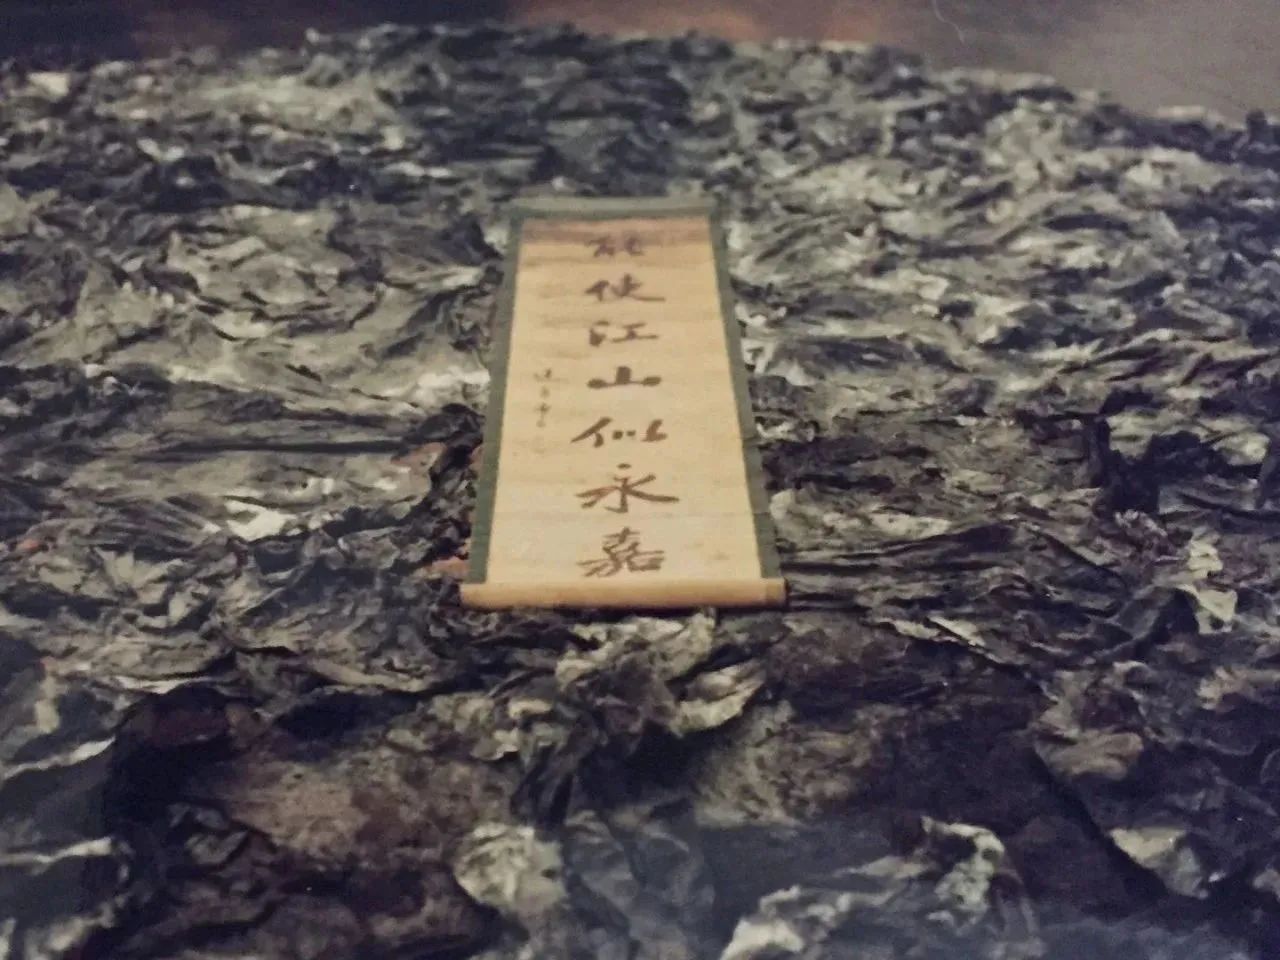 能使江山似永嘉